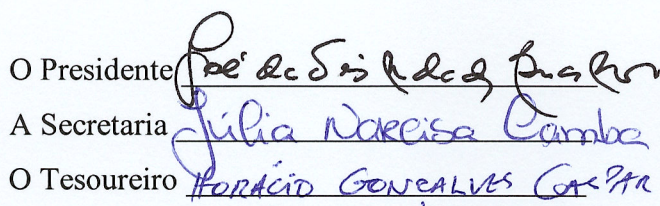 O Presidente José da
A Secretaria Júlia Narcisa Camba
O Tesoureiro HORÁCIO GONÇALVES GASPAR